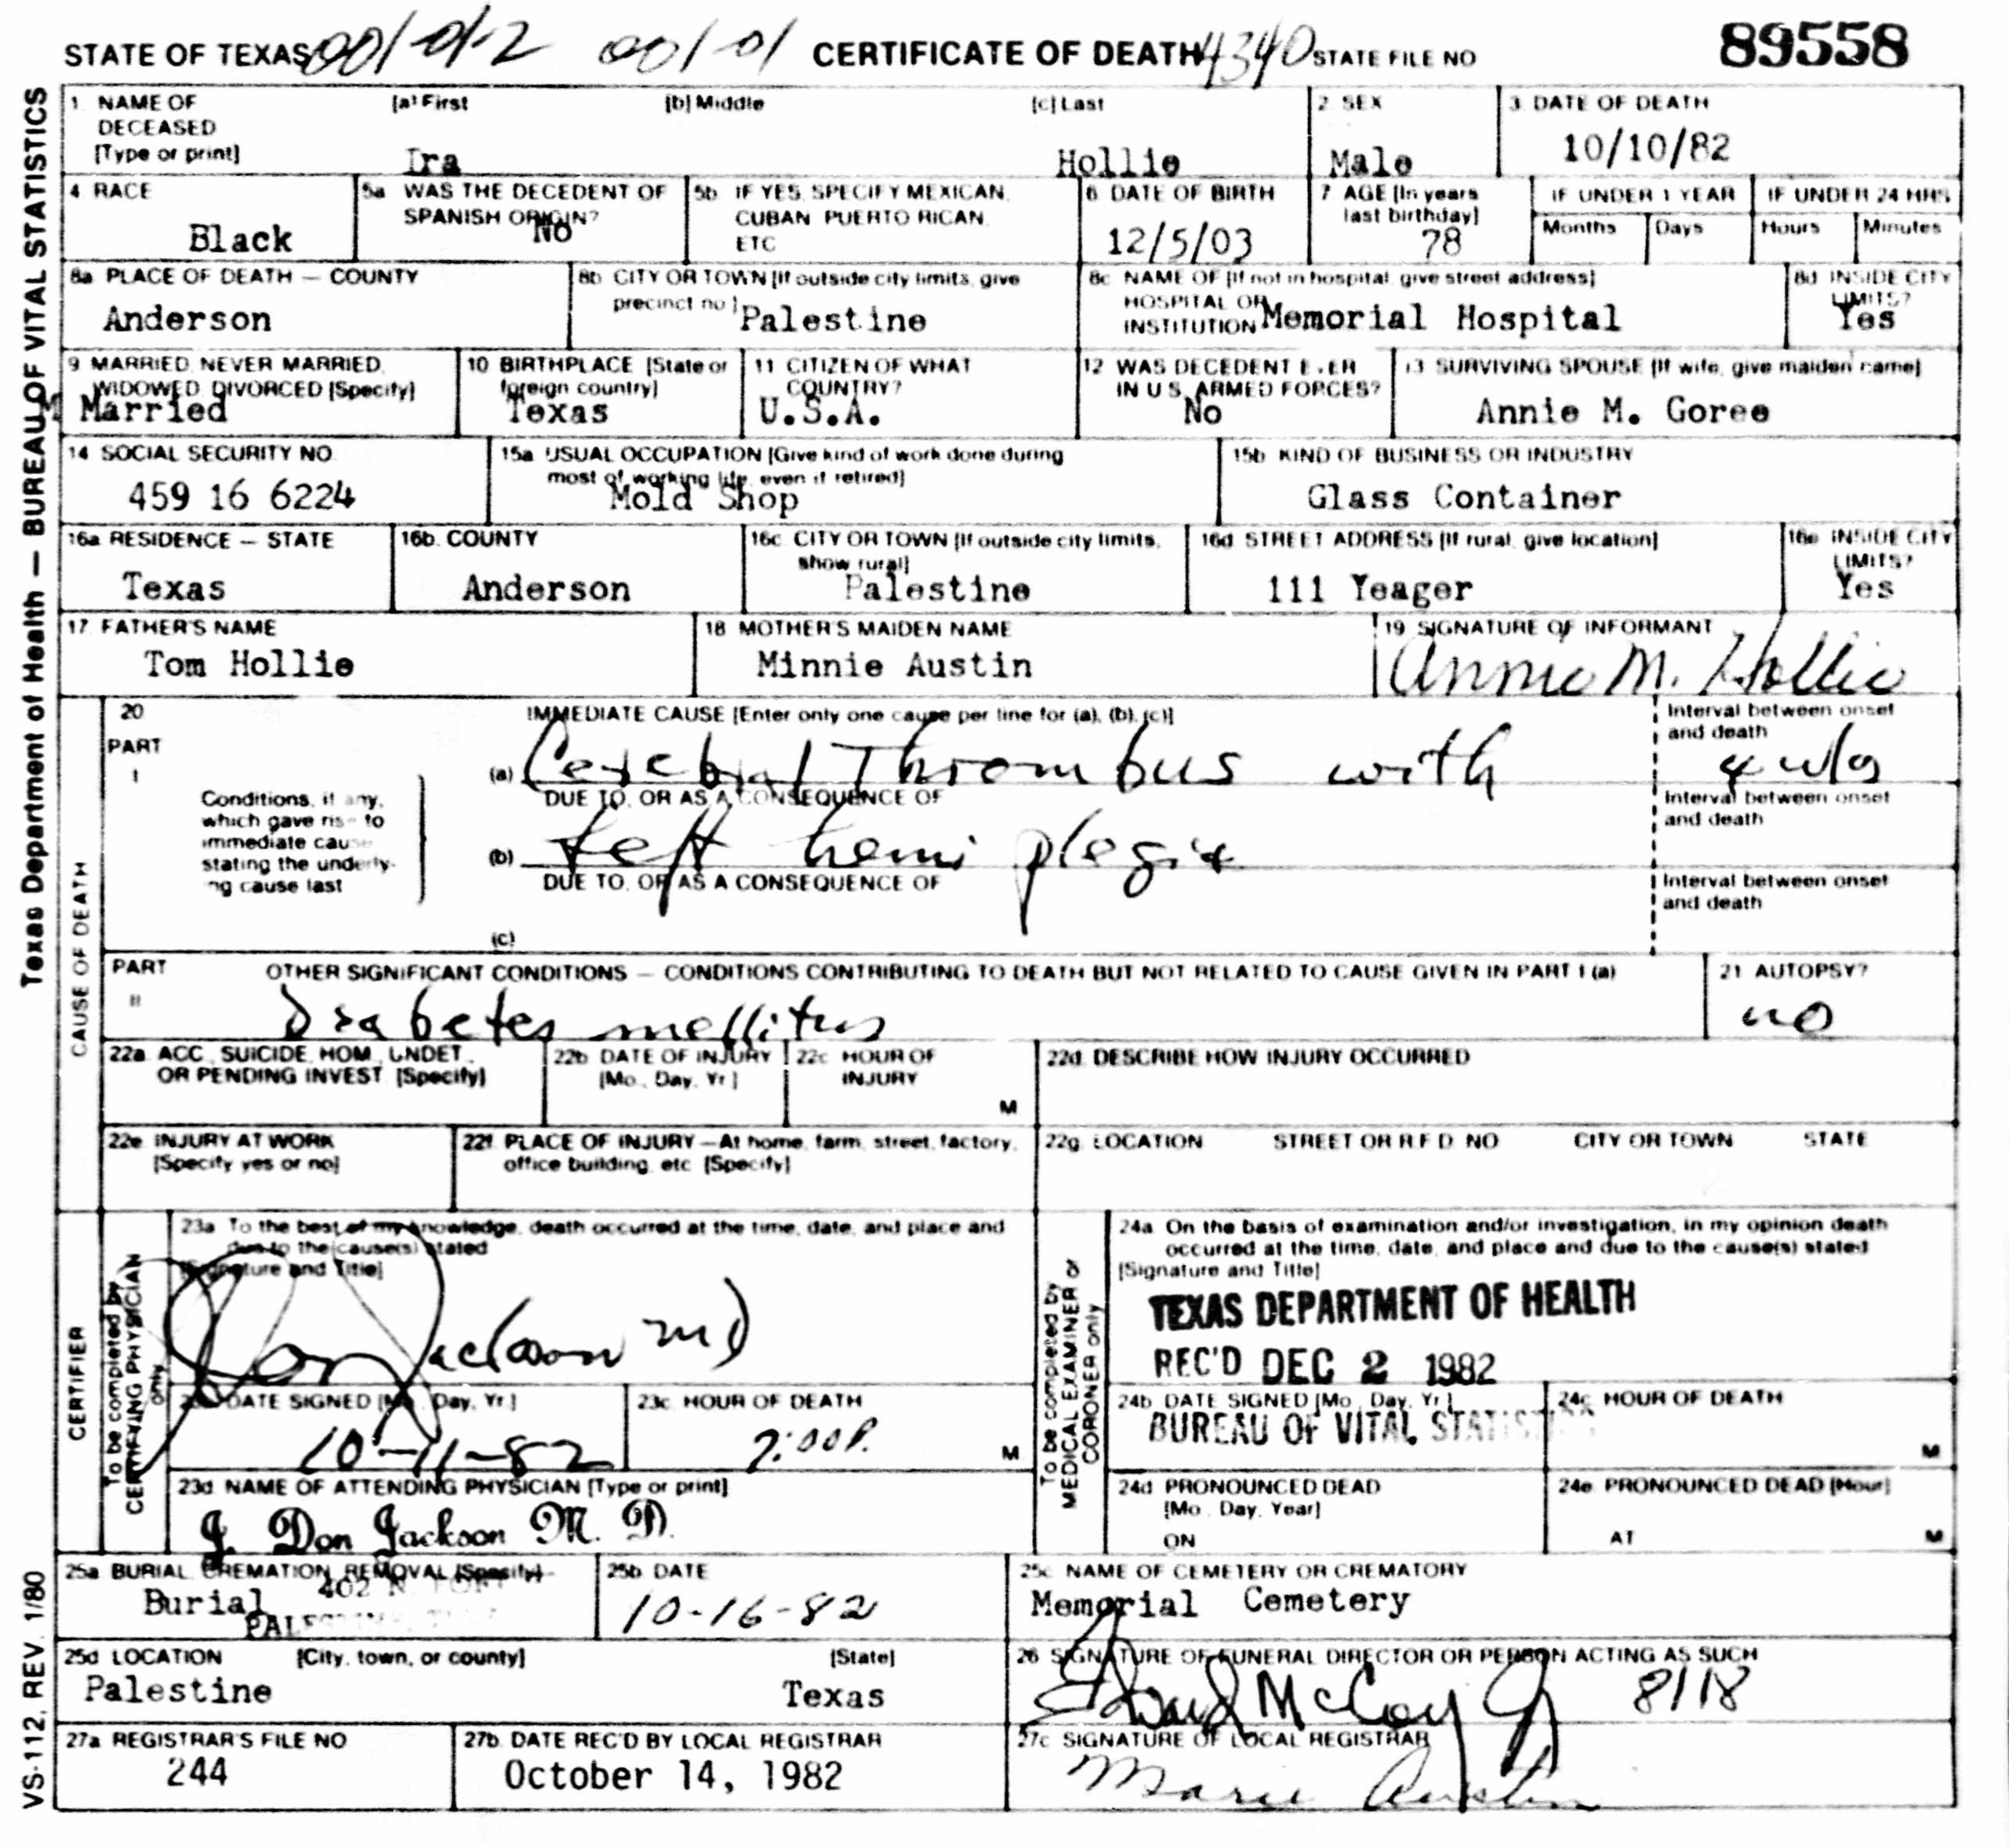 STATE OF TEXAS 001-012 001-01 CERTIFICATE OF DEATH 4340 STATE FILE NO 89558
Texas Department of Health — BUREAU OF VITAL STATISTICS
1 NAME OF DECEASED [Type or print] [a] First [b] Middle [c] Last
Ira Hollie
2 SEX
Male
3 DATE OF DEATH
10/10/82
4 RACE
Black
5a WAS THE DECEDENT OF SPANISH ORIGIN?
No
5b IF YES, SPECIFY MEXICAN, CUBAN PUERTO RICAN, ETC
6 DATE OF BIRTH
12/5/03
7 AGE [In years last birthday]
78
IF UNDER 1 YEAR
Months Days
IF UNDER 24 HRS
Hours Minutes
8a PLACE OF DEATH — COUNTY
Anderson
8b CITY OR TOWN [If outside city limits, give precinct no]
Palestine
8c NAME OF [If not in hospital, give street address] HOSPITAL OR INSTITUTION
Memorial Hospital
8d INSIDE CITY LIMITS?
Yes
9 MARRIED, NEVER MARRIED, WIDOWED, DIVORCED [Specify]
Married
10 BIRTHPLACE [State or foreign country]
Texas
11 CITIZEN OF WHAT COUNTRY?
U.S.A.
12 WAS DECEDENT EVER IN U S ARMED FORCES?
No
13 SURVIVING SPOUSE [If wife, give maiden name]
Annie M. Goree
14 SOCIAL SECURITY NO
459 16 6224
15a USUAL OCCUPATION [Give kind of work done during most of working life, even if retired]
Mold Shop
15b KIND OF BUSINESS OR INDUSTRY
Glass Container
16a RESIDENCE — STATE
Texas
16b. COUNTY
Anderson
16c CITY OR TOWN [If outside city limits, show rural]
Palestine
16d STREET ADDRESS [If rural, give location]
111 Yeager
16e INSIDE CITY LIMITS?
Yes
17 FATHER'S NAME
Tom Hollie
18 MOTHER'S MAIDEN NAME
Minnie Austin
19 SIGNATURE OF INFORMANT
Annie M. Hollie
CAUSE OF DEATH
20 PART I
IMMEDIATE CAUSE [Enter only one cause per line for (a), (b), (c)]
Conditions, if any, which gave rise to immediate cause stating the underlying cause last
(a) Cerebral Thrombus with
Interval between onset and death
DUE TO, OR AS A CONSEQUENCE OF
(b) Left hemi plegia
Interval between onset and death
DUE TO, OR AS A CONSEQUENCE OF
(c)
Interval between onset and death
PART II OTHER SIGNIFICANT CONDITIONS — CONDITIONS CONTRIBUTING TO DEATH BUT NOT RELATED TO CAUSE GIVEN IN PART I (a)
Diabetes mellitus
21 AUTOPSY?
no
22a ACC, SUICIDE, HOM, UNDET, OR PENDING INVEST [Specify]
22b DATE OF INJURY [Mo, Day, Yr]
22c HOUR OF INJURY
M
22d DESCRIBE HOW INJURY OCCURRED
22e INJURY AT WORK [Specify yes or no]
22f PLACE OF INJURY — At home, farm, street, factory, office building, etc [Specify]
22g LOCATION STREET OR R F D NO CITY OR TOWN STATE
CERTIFIER
To be completed by CERTIFYING PHYSICIAN only
23a To the best of my knowledge, death occurred at the time, date, and place and due to the cause(s) stated
[Signature and Title]
Don Jackson MD
23b DATE SIGNED [Mo, Day, Yr]
10-11-82
23c HOUR OF DEATH
2:00 P. M
23d NAME OF ATTENDING PHYSICIAN [Type or print]
J. Don Jackson M. D.
To be completed by MEDICAL EXAMINER or CORONER only
24a On the basis of examination and/or investigation, in my opinion death occurred at the time, date, and place and due to the cause(s) stated
[Signature and Title]
TEXAS DEPARTMENT OF HEALTH
REC'D DEC 2 1982
BUREAU OF VITAL STATISTICS
24b DATE SIGNED [Mo, Day, Yr]
24c HOUR OF DEATH
M
24d PRONOUNCED DEAD [Mo, Day, Year]
ON
24e PRONOUNCED DEAD [Hour]
AT M
25a BURIAL, CREMATION, REMOVAL [Specify]
402 N.
Burial
25b DATE
10-16-82
25c NAME OF CEMETERY OR CREMATORY
Memorial Cemetery
25d LOCATION [City, town, or county] [State]
Palestine Texas
26 SIGNATURE OF FUNERAL DIRECTOR OR PERSON ACTING AS SUCH
Edward McCoy Jr 8118
27a REGISTRAR'S FILE NO
244
27b DATE REC'D BY LOCAL REGISTRAR
October 14, 1982
27c SIGNATURE OF LOCAL REGISTRAR
Marie Austin
VS-112, REV. 1/80